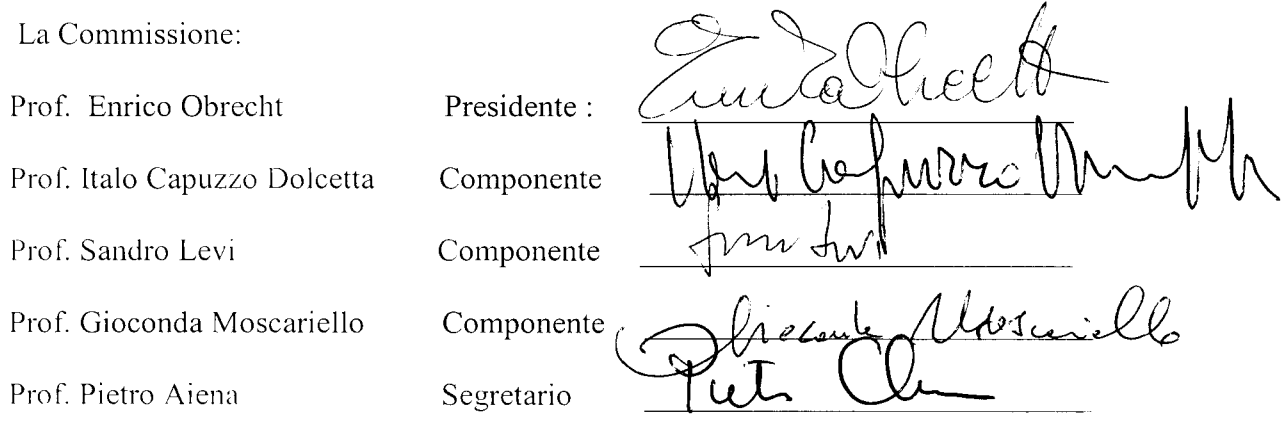 La Commissione:
Prof. Enrico Obrecht Presidente :
Prof. Italo Capuzzo Dolcetta Componente
Prof. Sandro Levi Componente
Prof. Gioconda Moscariello Componente Gioconda Moscariello
Prof. Pietro Aiena Segretario Pietro